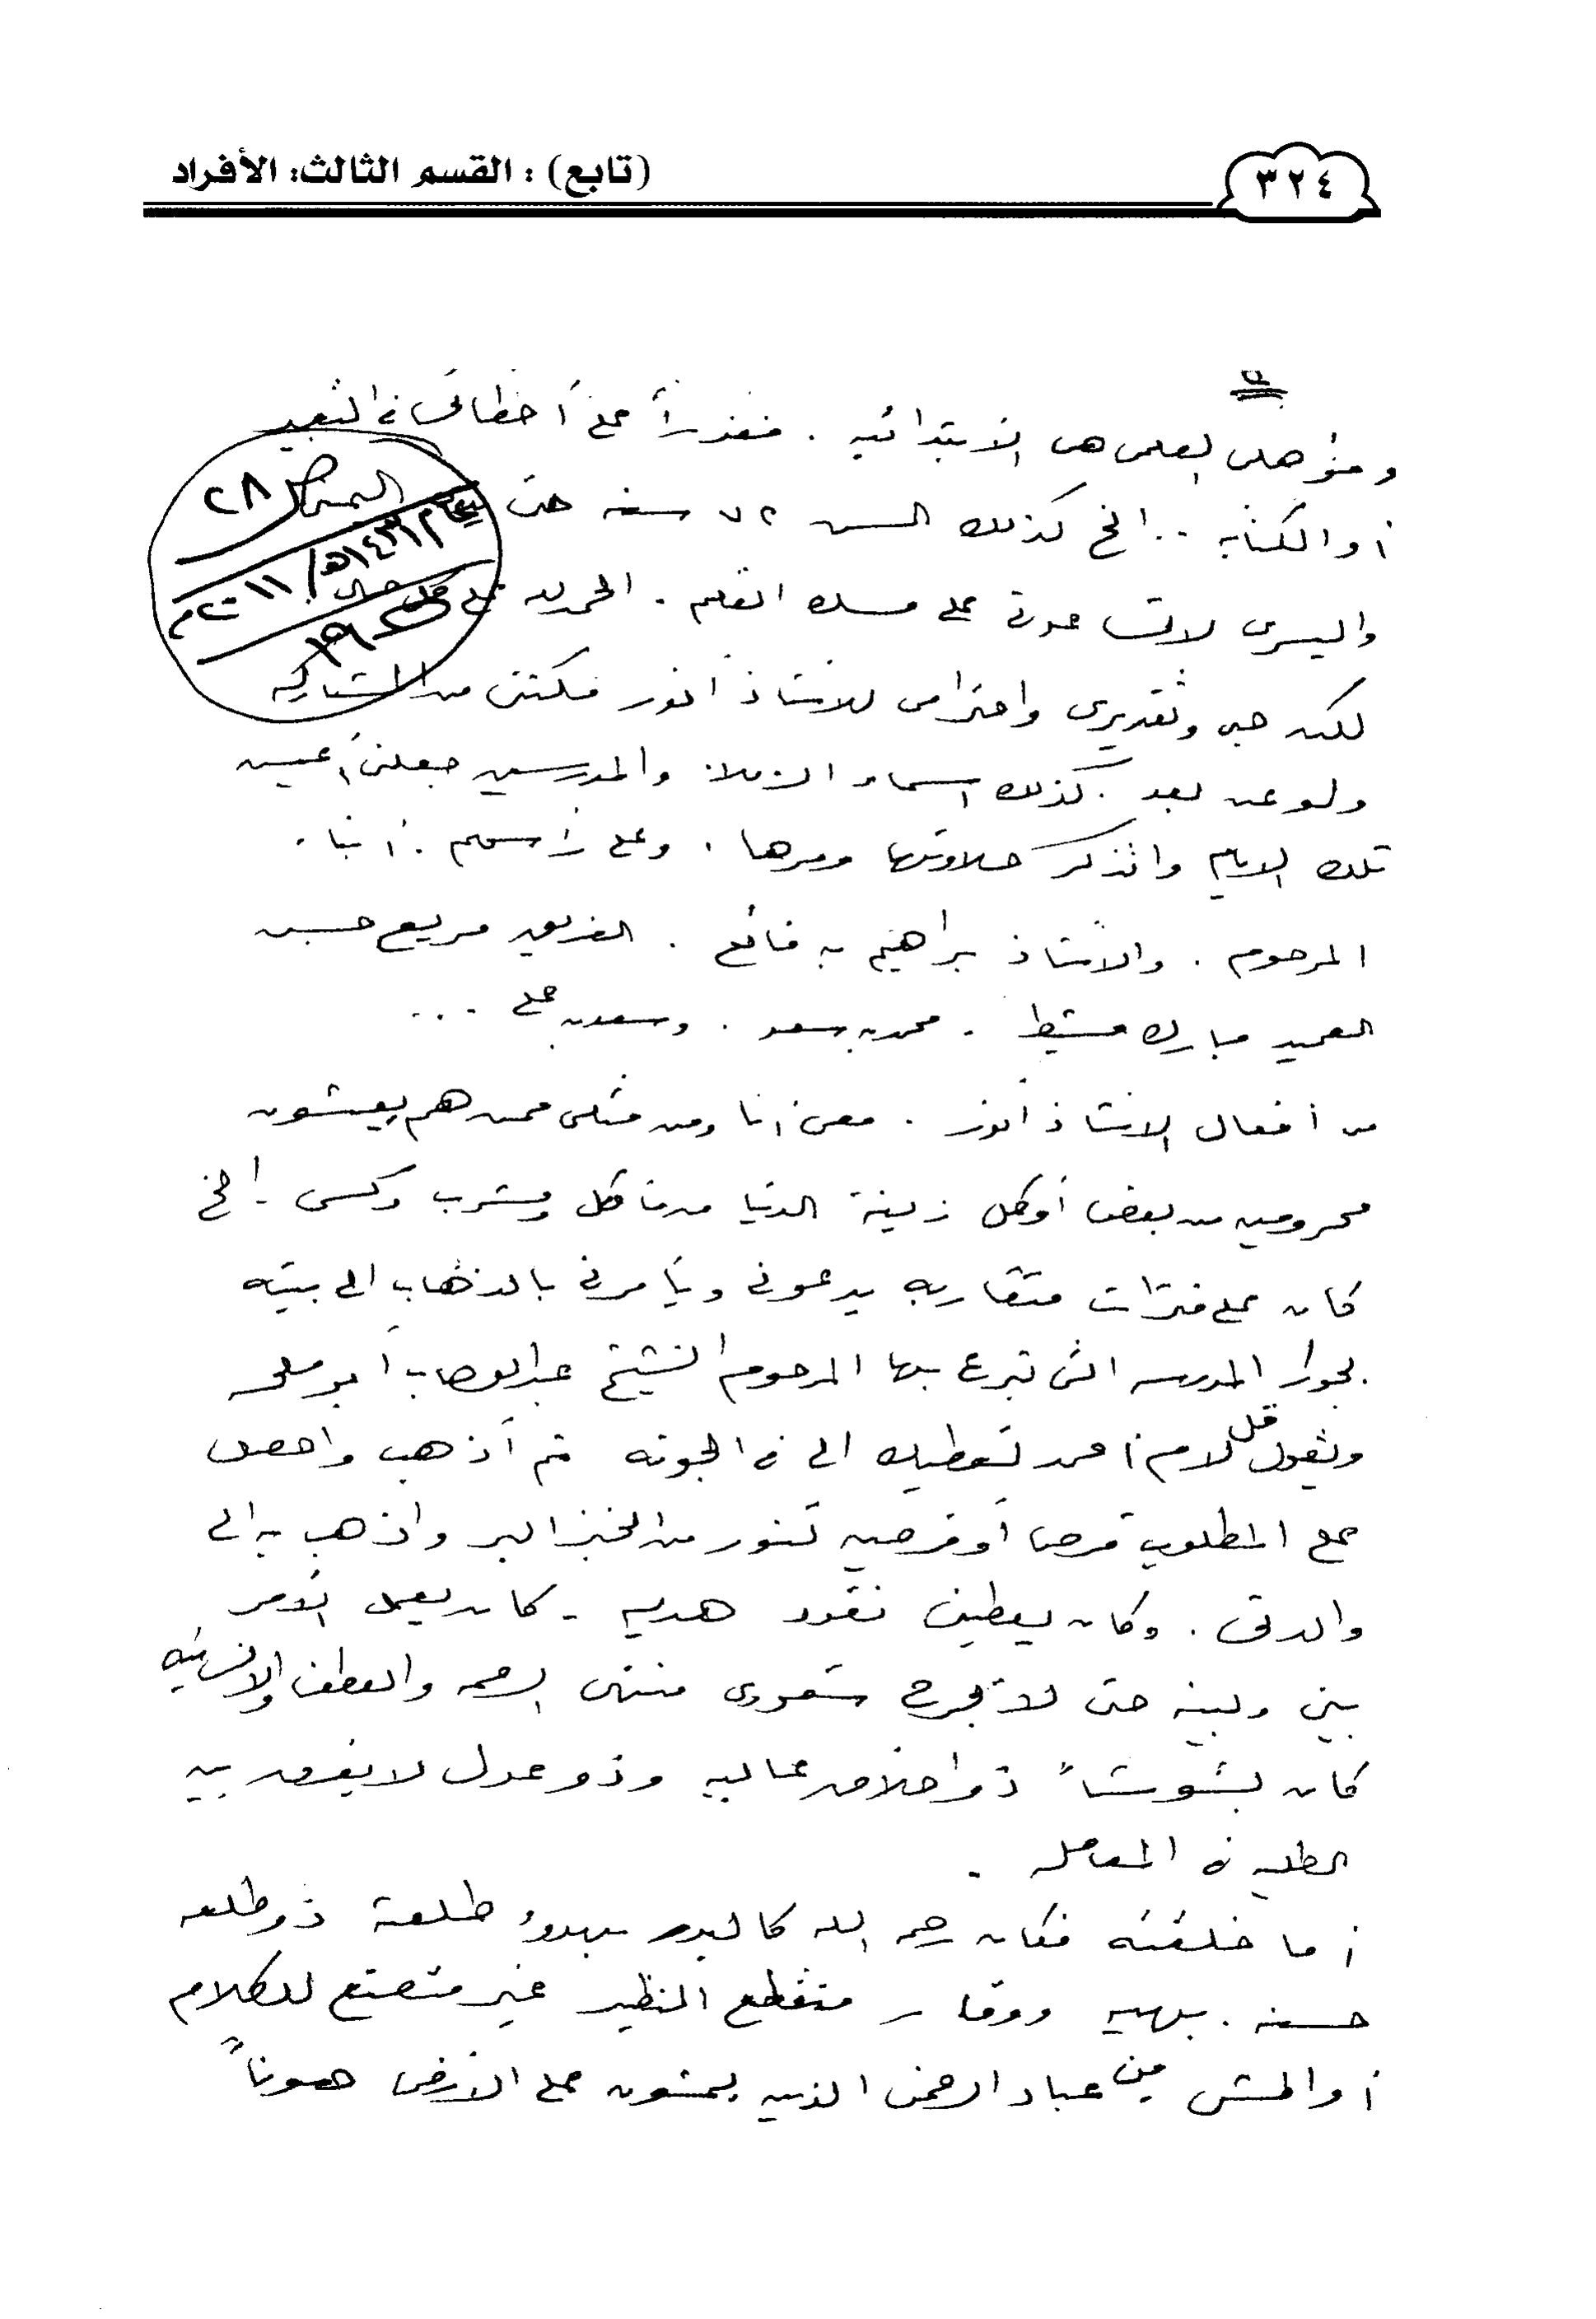 ٣٢٤
(تابع) : القسم الثالث: الأفراد
ومؤهلي العلمي هي الابتدائيه . فعذراً على أخطائي في التعبير
أو الكتابه .. الخ كذلك السن ٧٢ سنه حتى
واليسرى لا تساعدني على مسك القلم . الحمد لله على كل حال
لكن حبي وتقديري واحترامي للأستاذ أنور مكنتني من المشاركه
ولو عن بعد . كذلك اسماء الزملاء والمدرسين جعلني أعيش
تلك الايام واتذكر حلاوتها ومرها . وعلى رأسهم .
المرحوم . والأستاذ براهيم بن فائع . الفريق مريع حسن
العميد مبارك مشيط . محمد بن سعد . وسعد بن علي ...
من أفعال الاستاذ أنور . معي أنا ومن مثلي ممن هم يعيشون
محرومين من بعض أو كل زينة الدنيا من مأكل ومشرب وكسى . الخ
كان على فترات متقاربه يدعوني ويأمرني بالذهاب الى بيته
بجوار المدرسه التي تبرع بها المرحوم الشيخ عبدالوهاب أبو ملحه
ويقول قل لام أحمد تعطيك الي في الجونه ثم أذهب واحصل
على المطلوب قرص أو قرصين تنور من الخبز البر واذهب به الى
والدتي . وكان يعطيني نقود هديه - كان يعمل الأمر
بيني وبينه حتى لا تجرح شعوري منتهى الرحمه والعطف والانسانيه
كان بشوشاً ذو اخلاق عاليه وذو عدل لا يفرق بين
الطلبه في المعامله .
أما خلقته فكان رحمه الله كالبدر بهدوء طلعة ذو طلعه
حسنه . بهيه ووقار منقطع النظير غير متصنع للكلام
أو المشي من عباد الرحمن الذين يمشون على الأرض هوناً